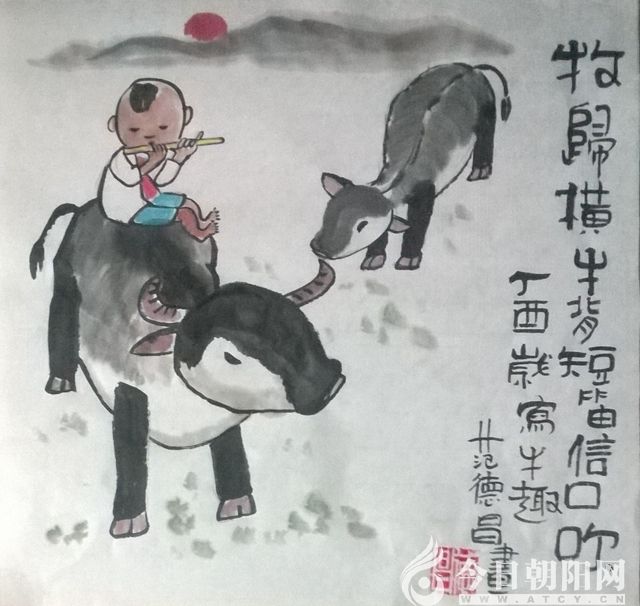 牧歸橫牛背短笛信口吹
丁酉歲寫牛趣
范德昌畫
今日朝阳网
WWW.ATCY.CN